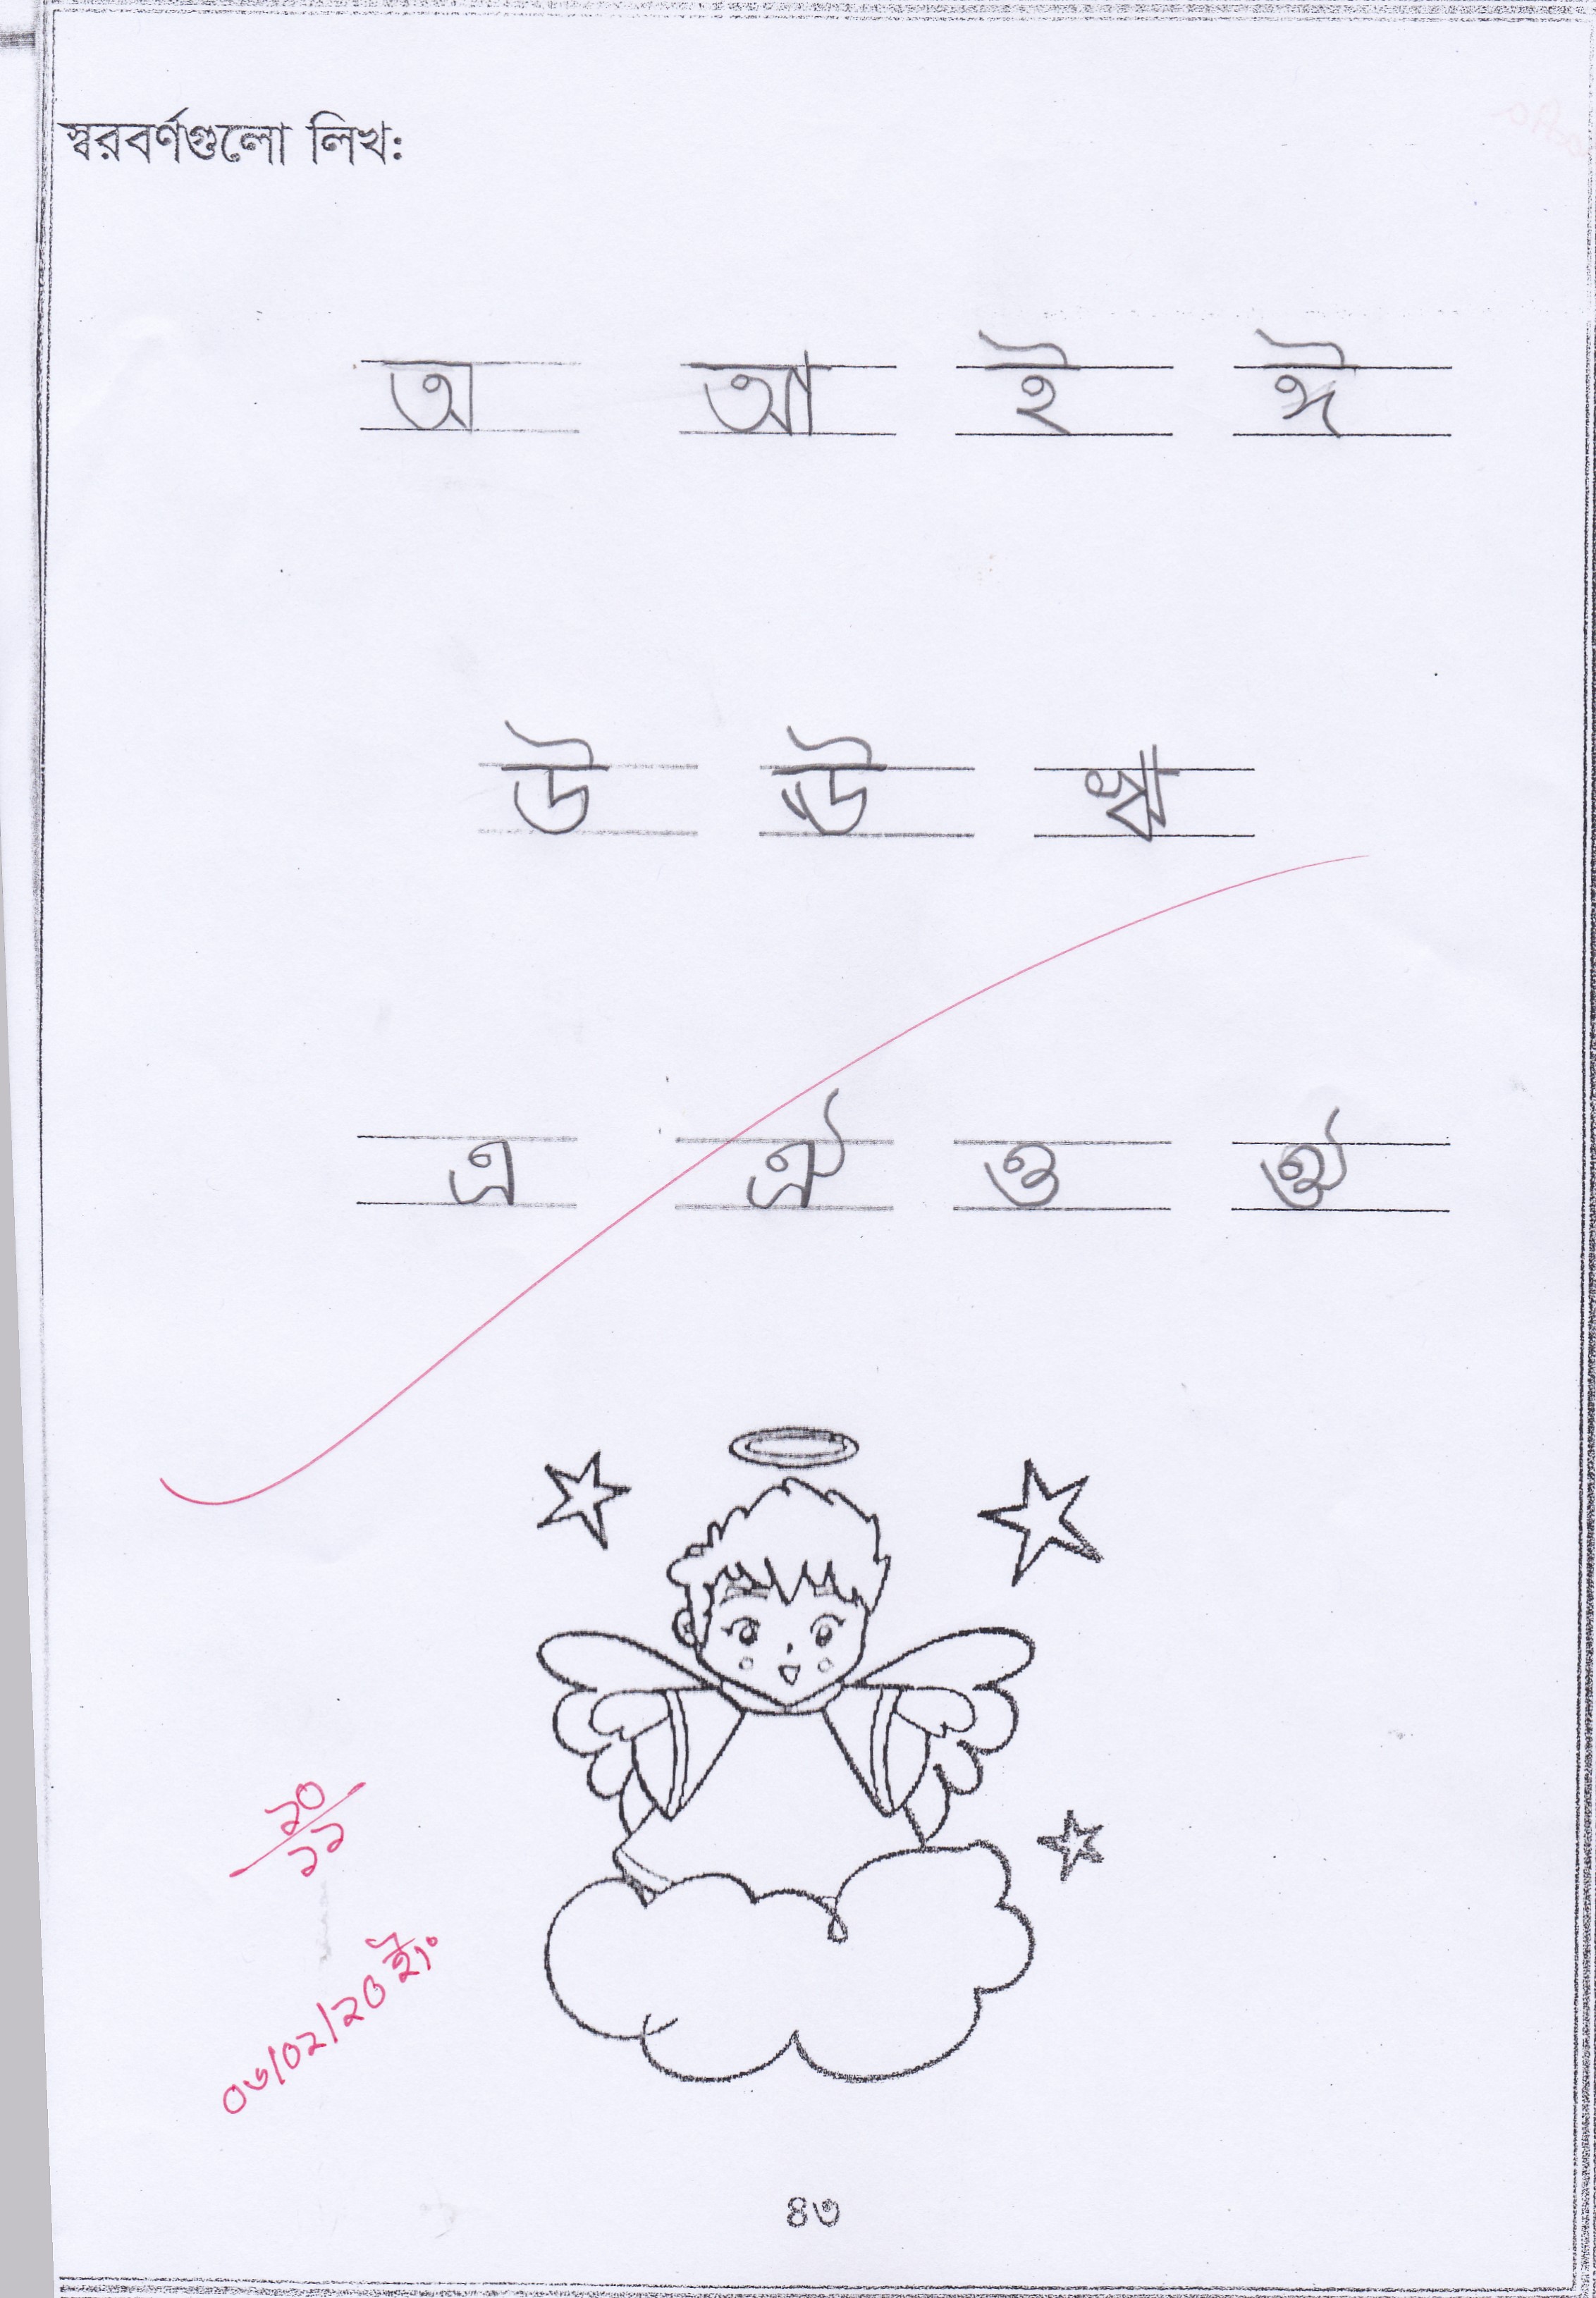 স্বরবর্ণগুলো লিখ:
অ আ ই ঈ
উ ঊ ঋ
এ ঐ ও ঔ
১০
১১
০৬/০২/২০ ইং
৪৩